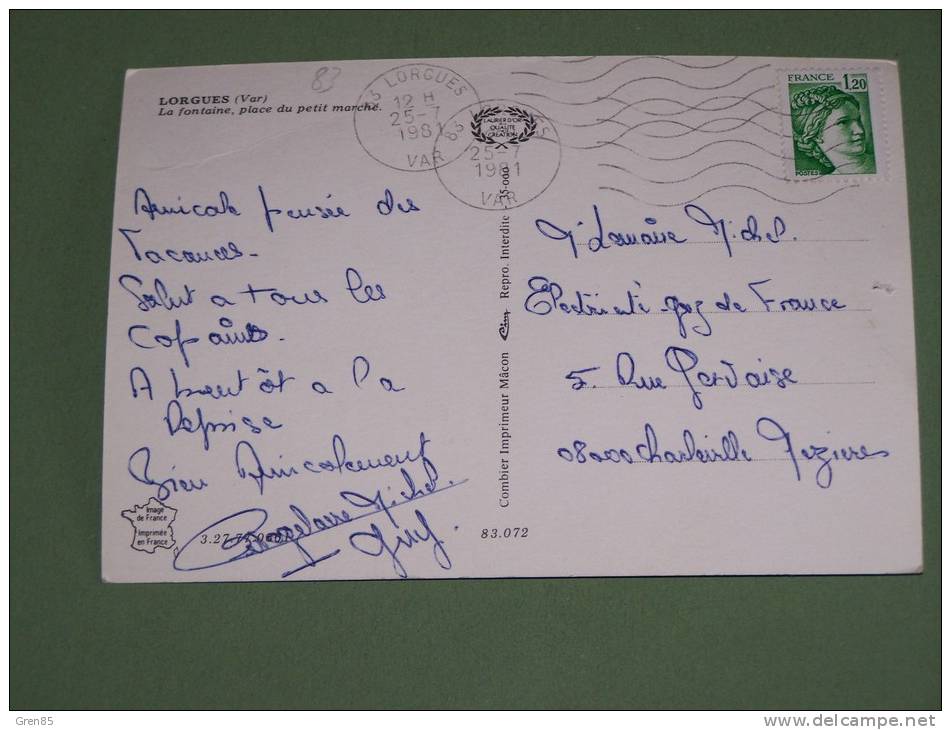 LORGUES (Var)
La fontaine, place du petit marché.
83
83 LORGUES
12 H
25-7
1981
VAR
83
25-7
1981
VAR
LAURIER D'OR
QUALITÉ
CRÉATION
FRANCE
1,20
POSTES
Amicale pensée des
Vacances-
Salut a tous les
Copains.
A bientôt a la
Reprise
Bien Amicalement
Michel.
Guy.
Mr Lemaire Michel.
Electricité-gaz de France
5. Rue Gervaise
08000 Charleville Mézières
Combier Imprimeur Mâcon Cim Repro. Interdite 35-000
Image
de France
Imprimée
en France
3.27.77.
83.072
Gren85
www.delcampe.net